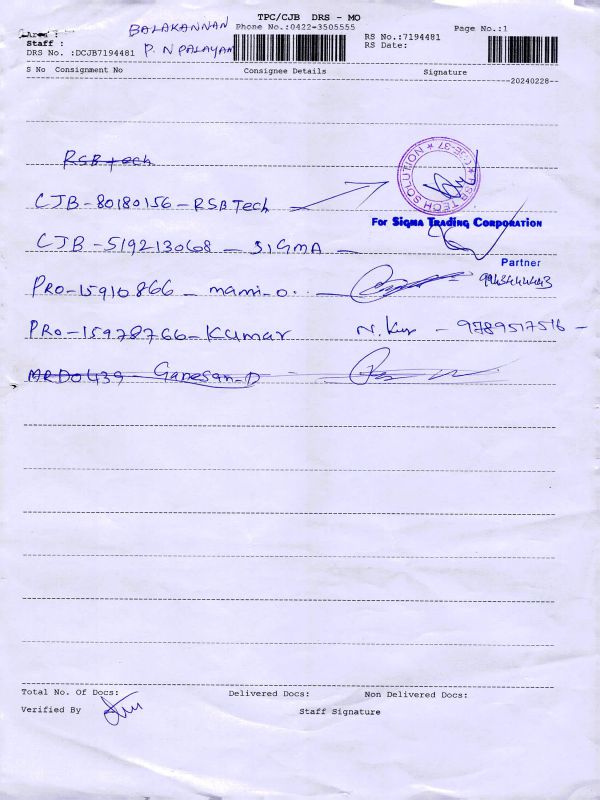 TPC/CJB DRS - MO
BALAKANNAN Phone No.:0422-3505555 Page No.:1
Area :
Staff : RS No.:7194481
DRS No. :DCJB7194481 P. N PALAYAM RS Date:
S No Consignment No Consignee Details Signature
20240228
RSB tech
CJB-80180156-RSB Tech
RSB TECH SOLUTION
For SIGMA TRADING CORPORATION
CJB-519213068-SIGMA-
Partner
PRO-15910866-mami-o..
PRO-15978766-Kumar N. Kur - 9789517516-
MRD0439-Ganesan-D
Total No. Of Docs: Delivered Docs: Non Delivered Docs:
Verified By Staff Signature